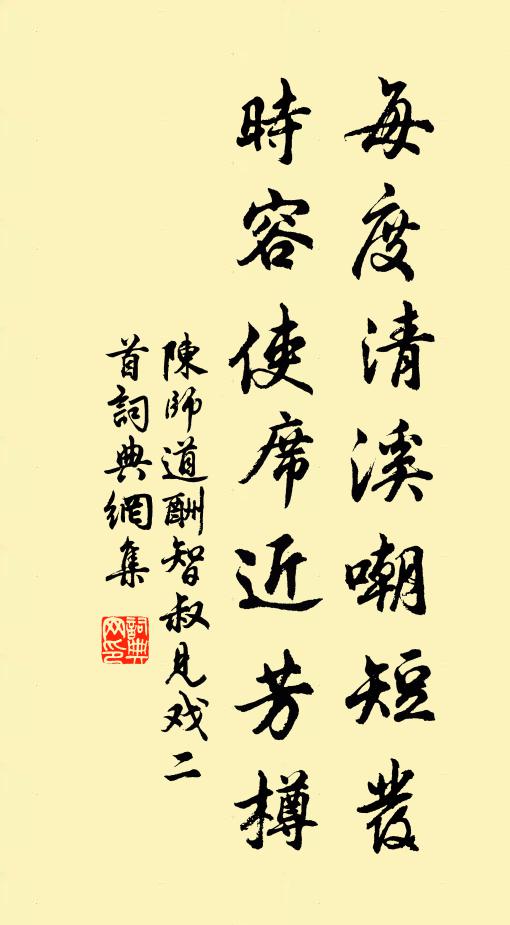 每度清溪嘲短發
時容使席近芳樽
陳師道酬智叔見戏二
首詞典網集
詞典网印